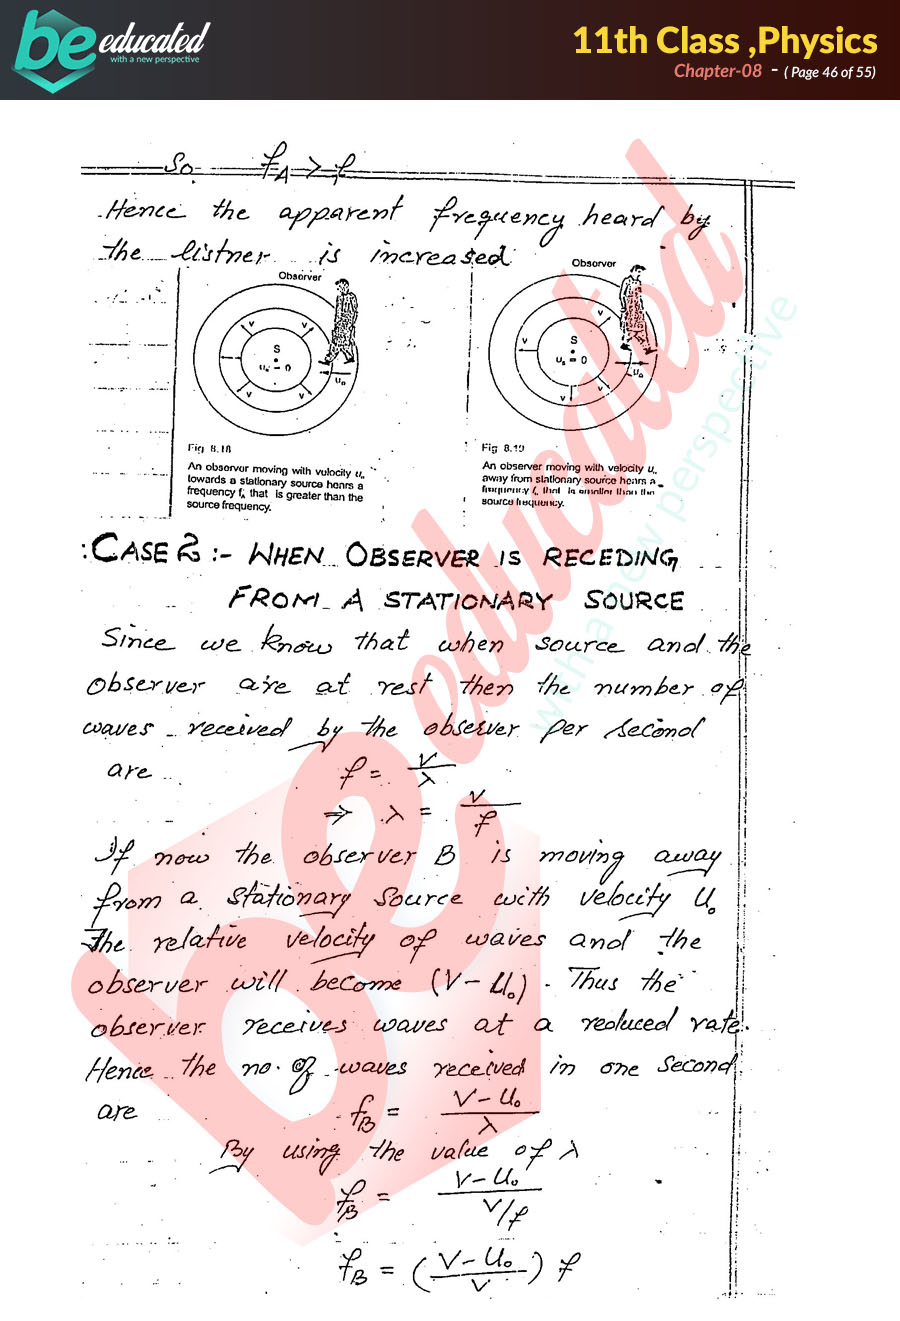 be educated
with a new perspective
11th Class ,Physics
Chapter-08 - ( Page 46 of 55)
So f_A > f
Hence the apparent frequency heard by
the listner is increased
Observer
v v
S
u_s = 0
v v
u_o
Fig 8.18
An observer moving with velocity u_o
towards a stationary source hears a
frequency f_A that is greater than the
source frequency.
Observer
v v
S
v u_s = 0
v v
u_o
Fig 8.19
An observer moving with velocity u_o
away from stationary source hears a
frequency f_B that is smaller than the
source frequency.
:CASE 2 :- WHEN OBSERVER IS RECEDING
FROM A STATIONARY SOURCE
Since we know that when source and the
observer are at rest then the number of
waves received by the observer per second
are f = v/λ
⇒ λ = v/f
If now the observer B is moving away
from a stationary source with velocity u_o
The relative velocity of waves and the
observer will become (v - u_o). Thus the
observer receives waves at a reduced rate.
Hence the no. of waves received in one second
are f_B = v - u_o / λ
By using the value of λ
f_B = v - u_o / v/f
f_B = (v - u_o / v) f
be educated
with a new perspective